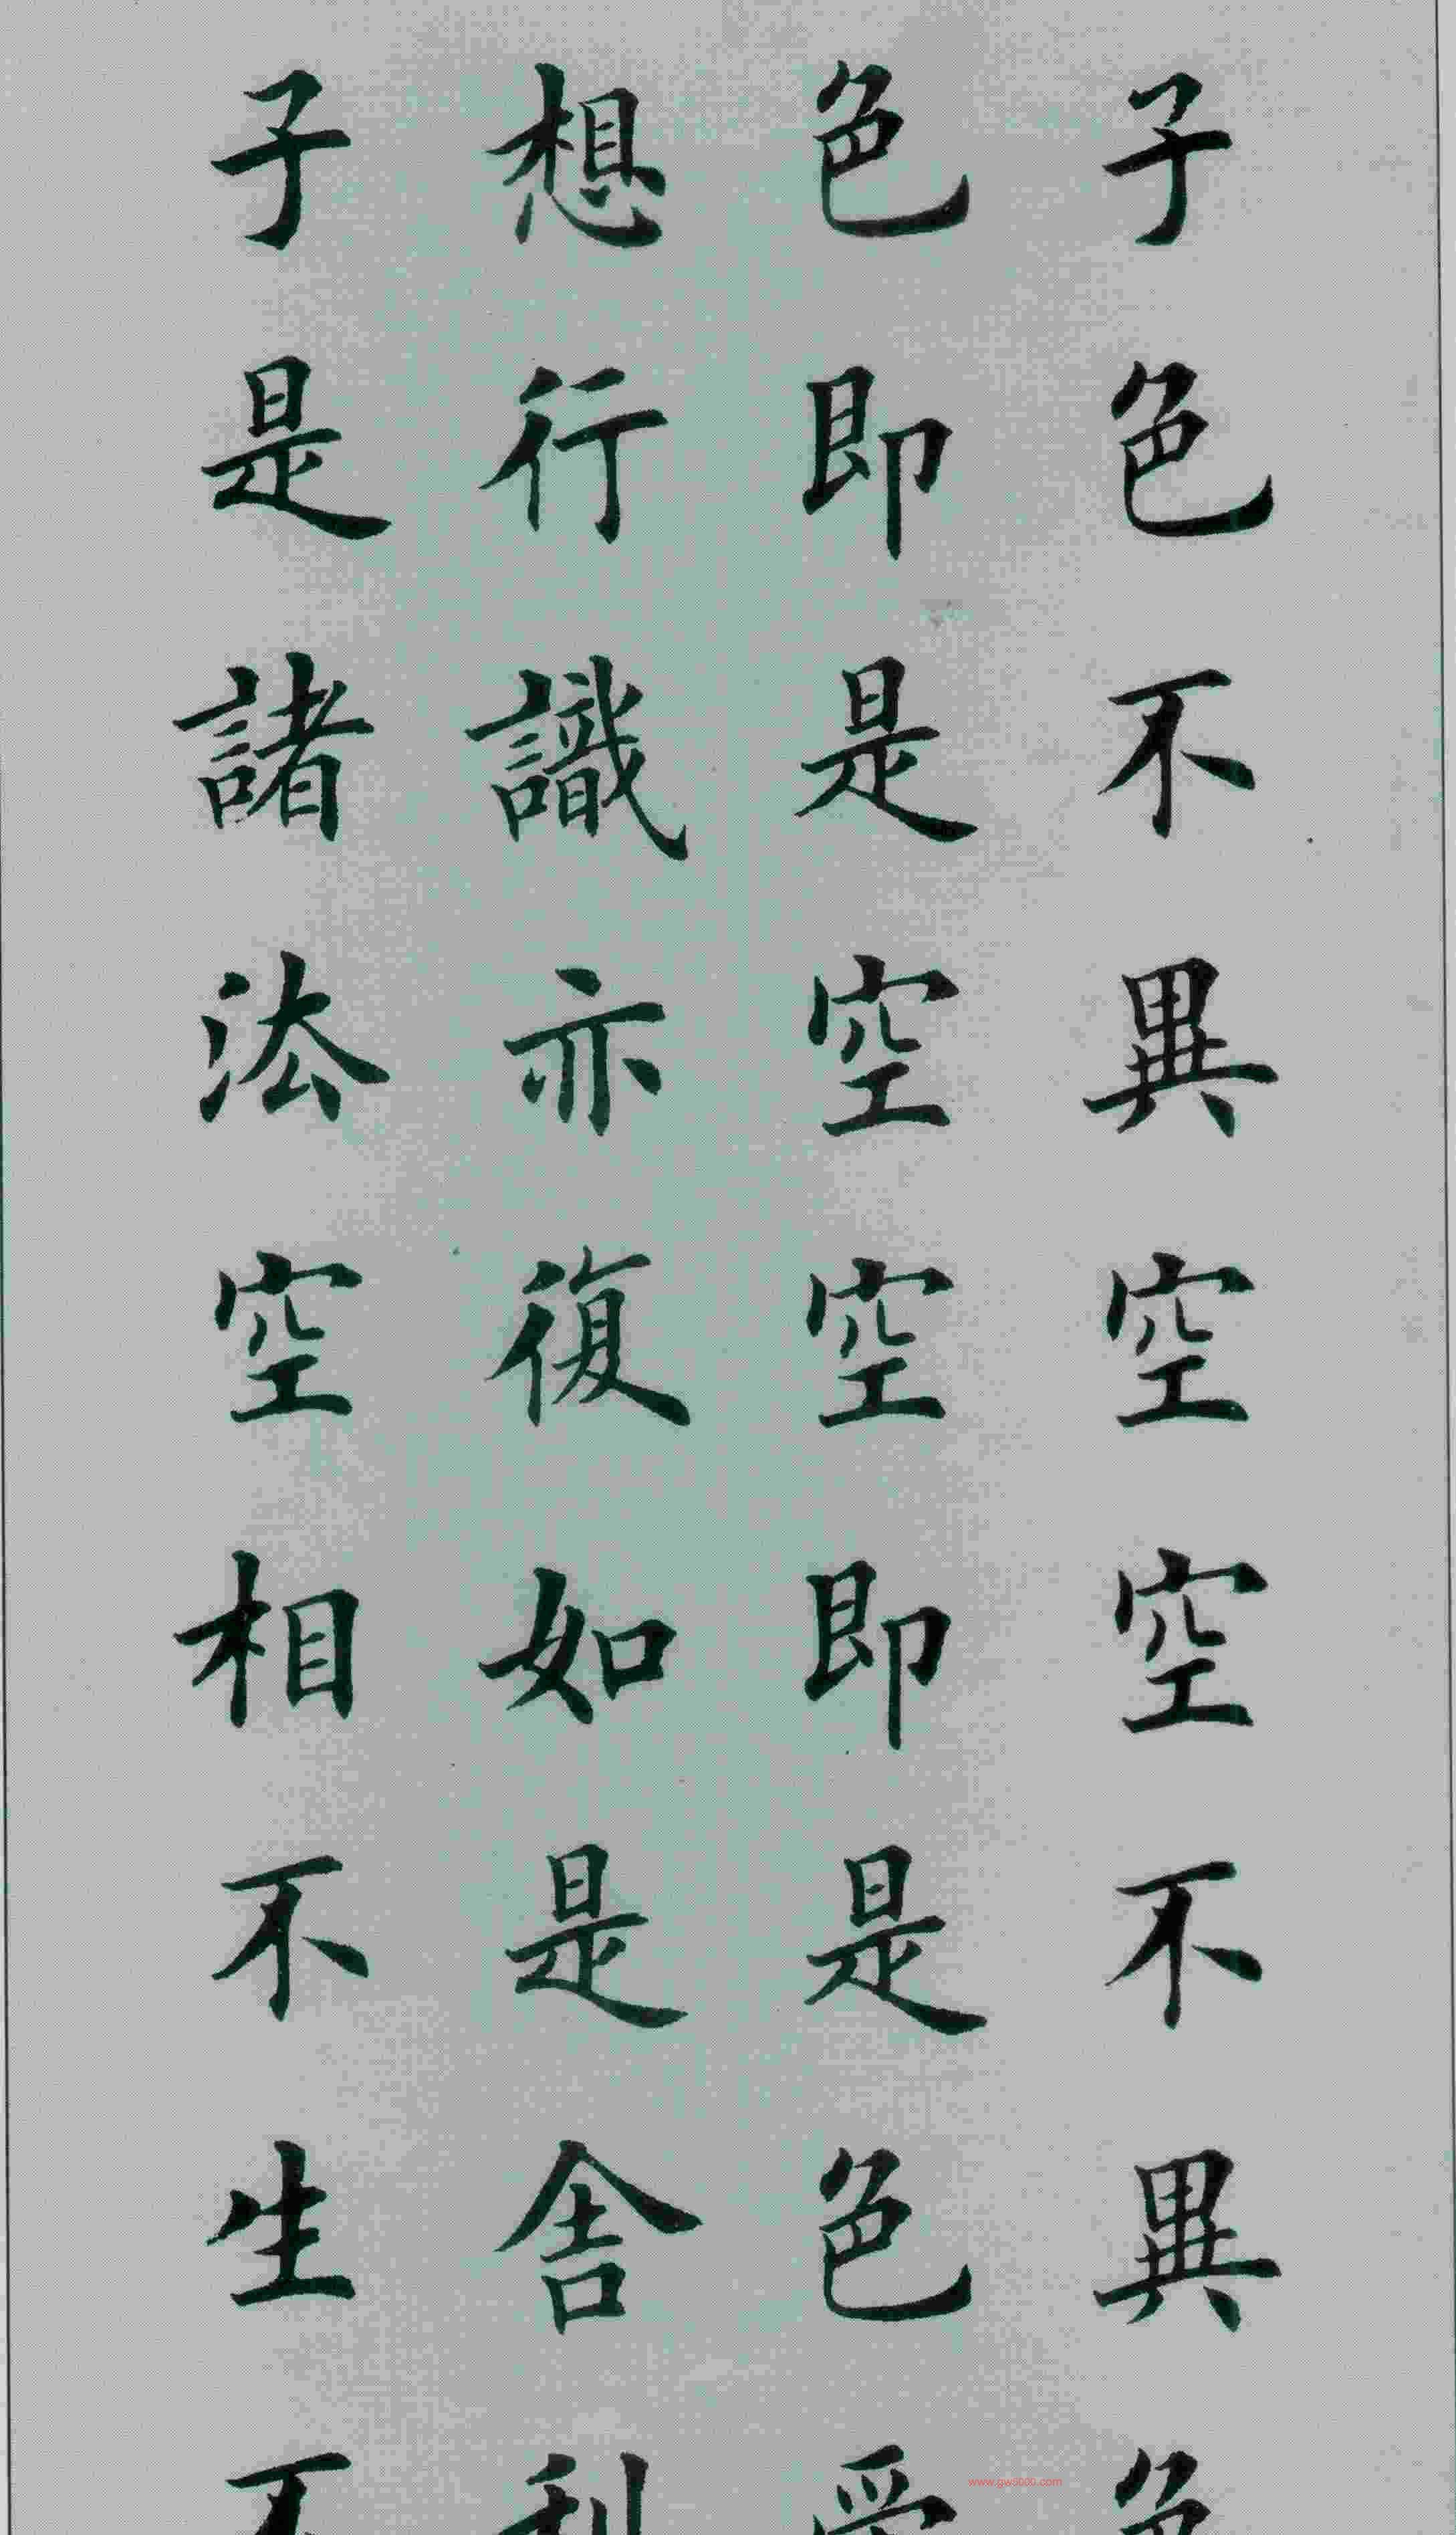 子色不異空空不異色
色即是空空即是色受
想行識亦復如是舍利
子是諸法空相不生不
www.gws000.com